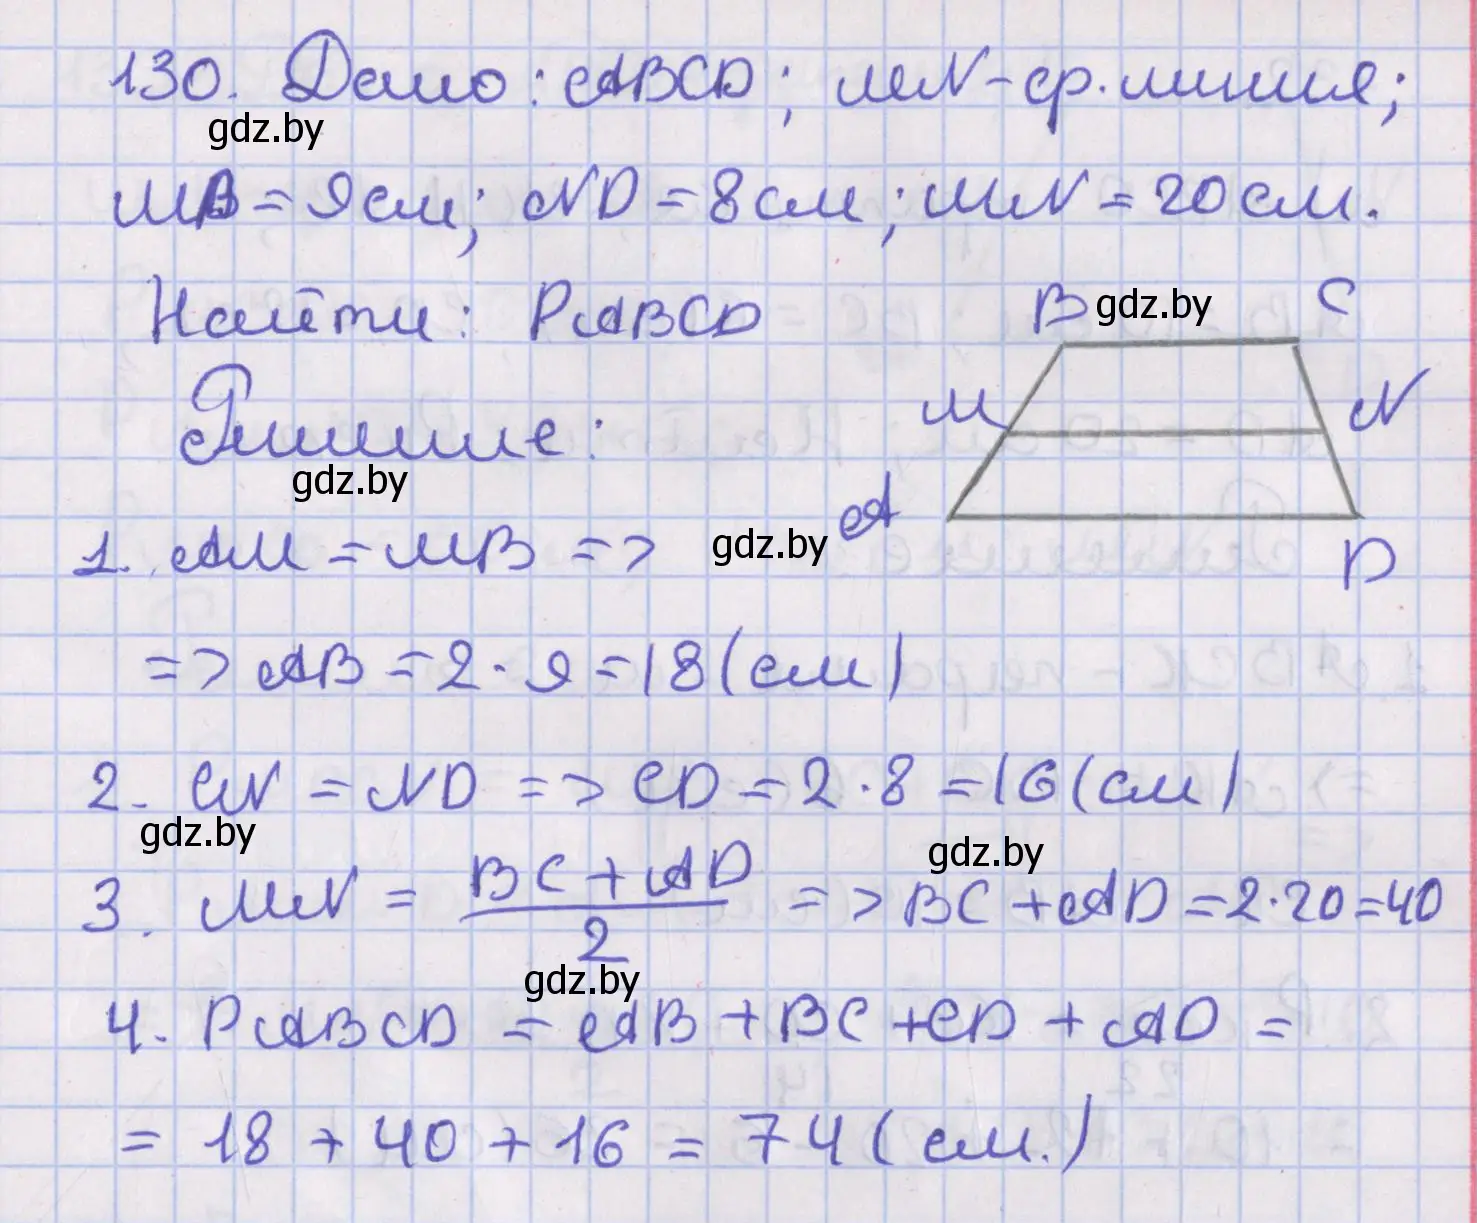 130. Дано: ABCD; MN - ср. линия;
gdz.by
MB = 9 см; ND = 8 см; MN = 20 см.
Найти: PABCD
B gdz.by C
Решение:
M N
gdz.by
A D
1. AM = MB => gdz.by
=> AB = 2 · 9 = 18 (см)
2. CN = ND => CD = 2 · 8 = 16 (см)
gdz.by gdz.by
3. MN = (BC + AD)/2 => BC + AD = 2 · 20 = 40
gdz.by
4. PABCD = AB + BC + CD + AD =
= 18 + 40 + 16 = 74 (см.)